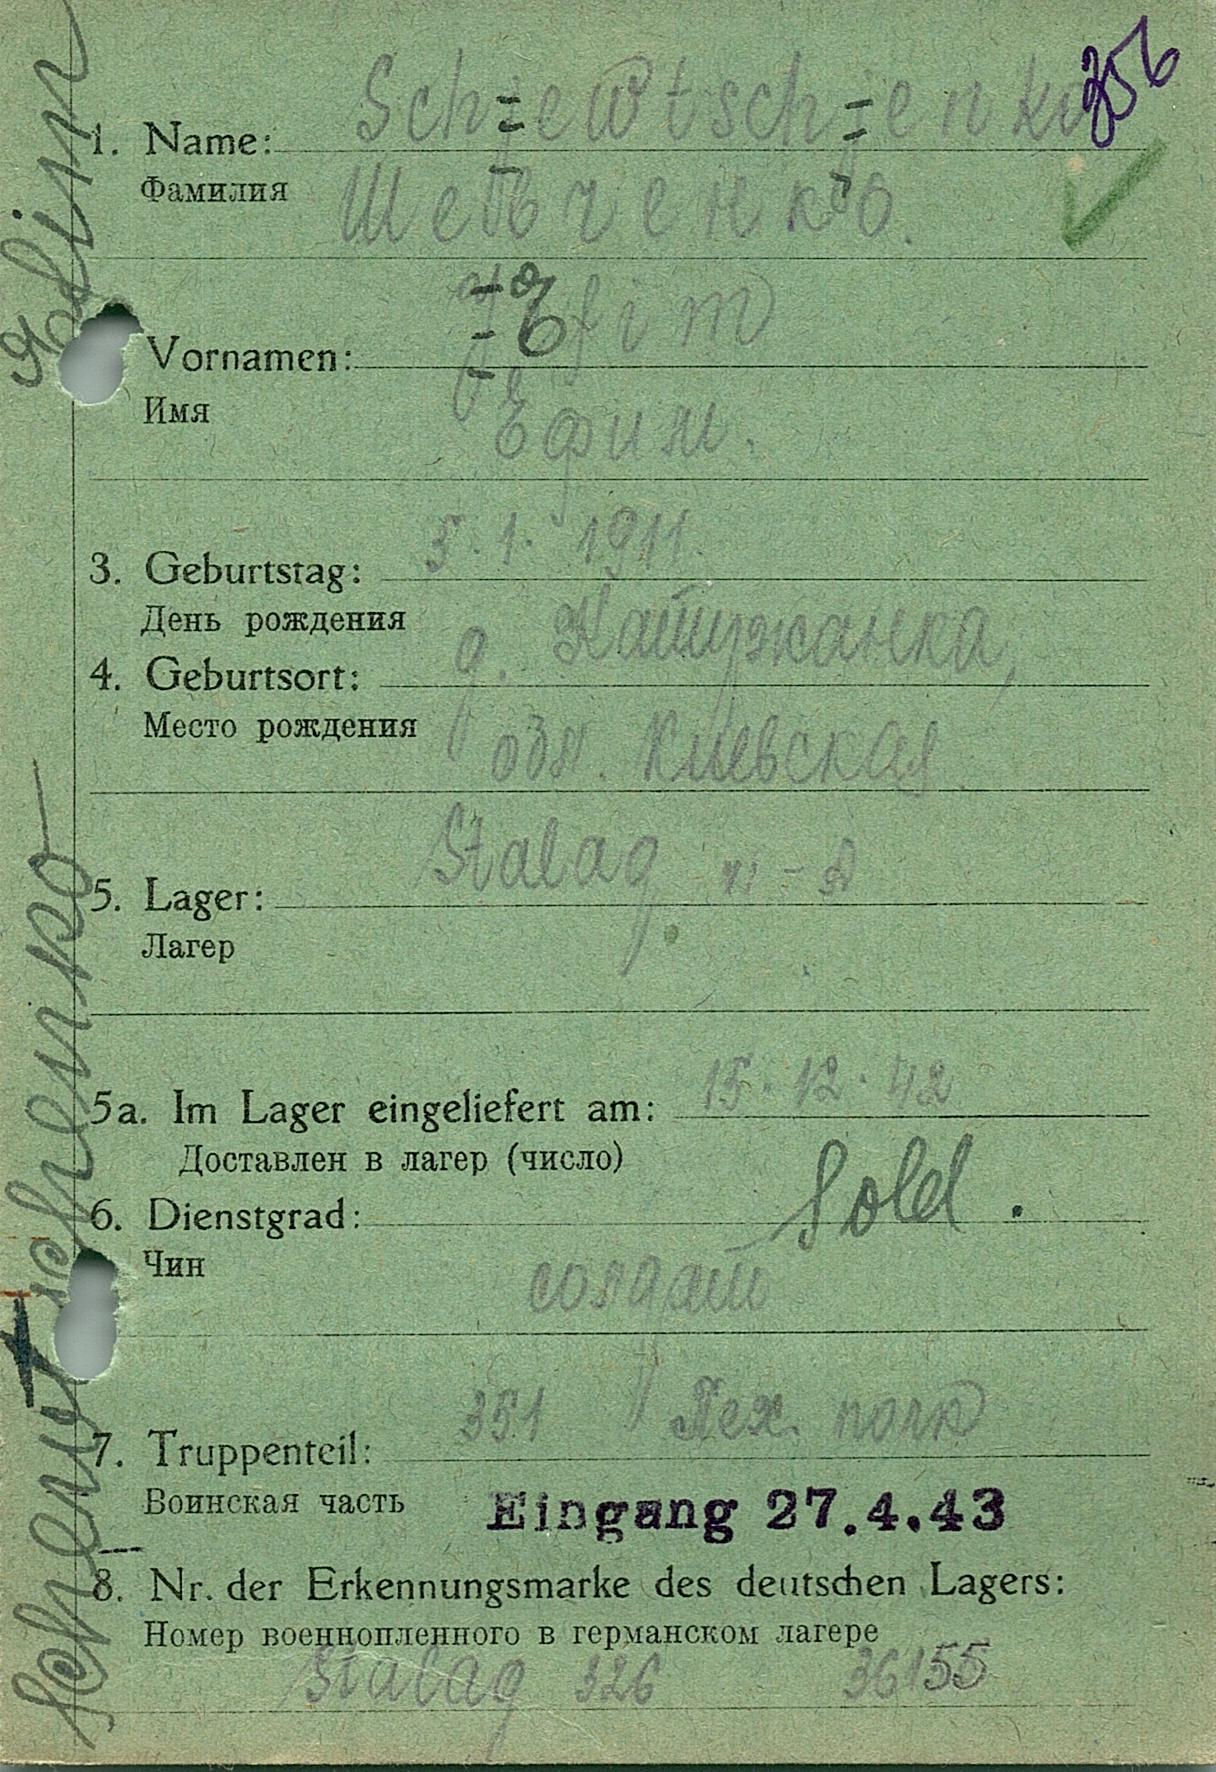 356
1. Name: Schjewtschjenko
Фамилия Шевченко.
Vornamen: Jefim
Имя Ефим.
3. Geburtstag: 5.1.1911.
День рождения
4. Geburtsort: д. Катюжанка,
Место рождения обл. Киевская
5. Lager: Stalag VI-A
Лагер
5a. Im Lager eingeliefert am: 15.12.42
Доставлен в лагер (число)
6. Dienstgrad: Sold.
Чин солдат
7. Truppenteil: 351 Пех. полк
Воинская часть Eingang 27.4.43
8. Nr. der Erkennungsmarke des deutschen Lagers:
Номер военнопленного в германском лагере
Stalag 326 36155
Schewtschenko Jefim